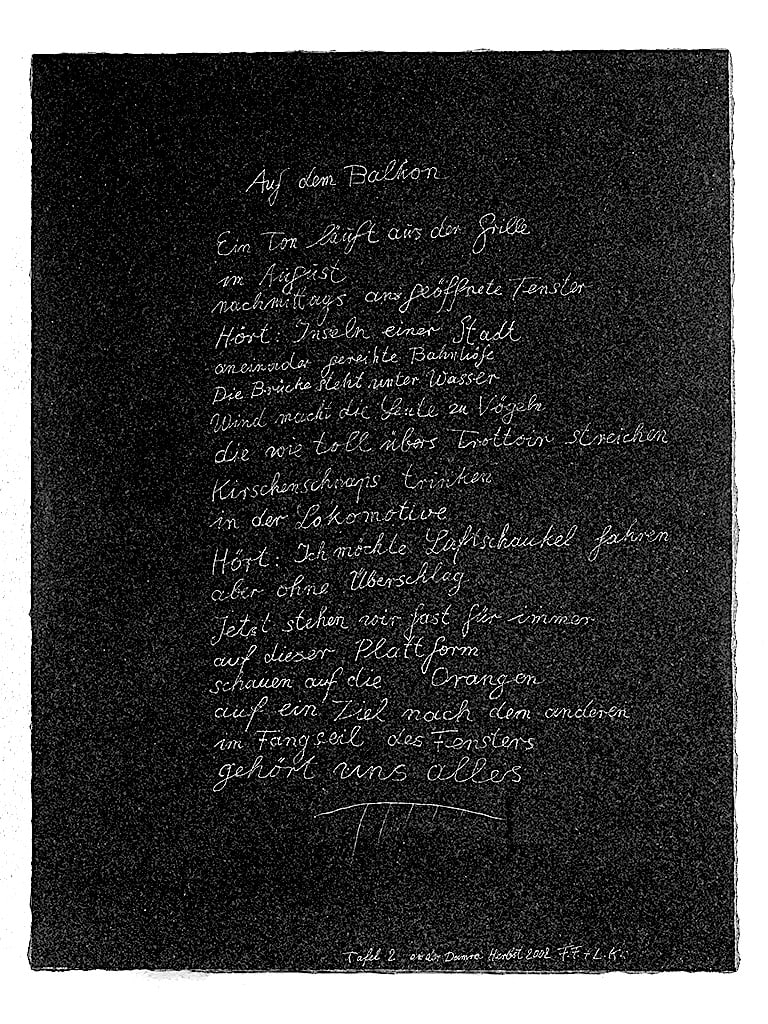 Auf dem Balkon
Ein Ton läuft aus der Grille
im August
nachmittags ans geöffnete Fenster
Hört: Inseln einer Stadt
aneinader gereihte Bahnhöfe
Die Brücke steht unter Wasser
Wind macht die Leute zu Vögeln
die wie toll übers Trottoir streichen
Kirschenschnaps trinken
in der Lokomotive
Hört: Ich möchte Luftschaukel fahren
aber ohne Überschlag
Jetzt stehen wir fast für immer
auf dieser Plattform
schauen auf die Orangen
auf ein Ziel nach dem anderen
im Fangseil des Fensters
gehört uns alles
Tafel 2 Herbst 2002 F.F. + L.K.